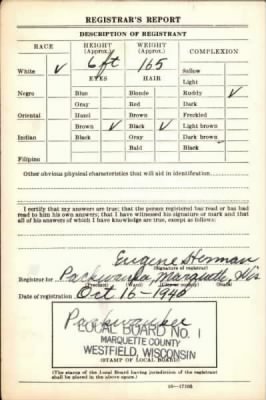 REGISTRAR'S REPORT
DESCRIPTION OF REGISTRANT
RACE HEIGHT (Approx.) WEIGHT (Approx.) COMPLEXION
6 ft 165
White ✓ Sallow
EYES HAIR Light
Negro Blue Blonde Ruddy ✓
Gray Red Dark
Oriental Hazel Brown Freckled
Brown ✓ Black ✓ Light brown
Indian Black Gray Dark brown
Bald Black
Filipino
Other obvious physical characteristics that will aid in identification
I certify that my answers are true; that the person registered has read or has had
read to him his own answers; that I have witnessed his signature or mark and that
all of his answers of which I have knowledge are true, except as follows:
Eugene Herman
(Signature of registrar)
Registrar for Packwaukee, Marquette, Wis
(Precinct) (Ward) (City or county) (State)
Date of registration Oct 16-1940
Packwaukee
LOCAL BOARD NO. 1
MARQUETTE COUNTY
WESTFIELD, WISCONSIN
(STAMP OF LOCAL BOARD)
(The stamp of the Local Board having jurisdiction of the registrant
shall be placed in the above space.)